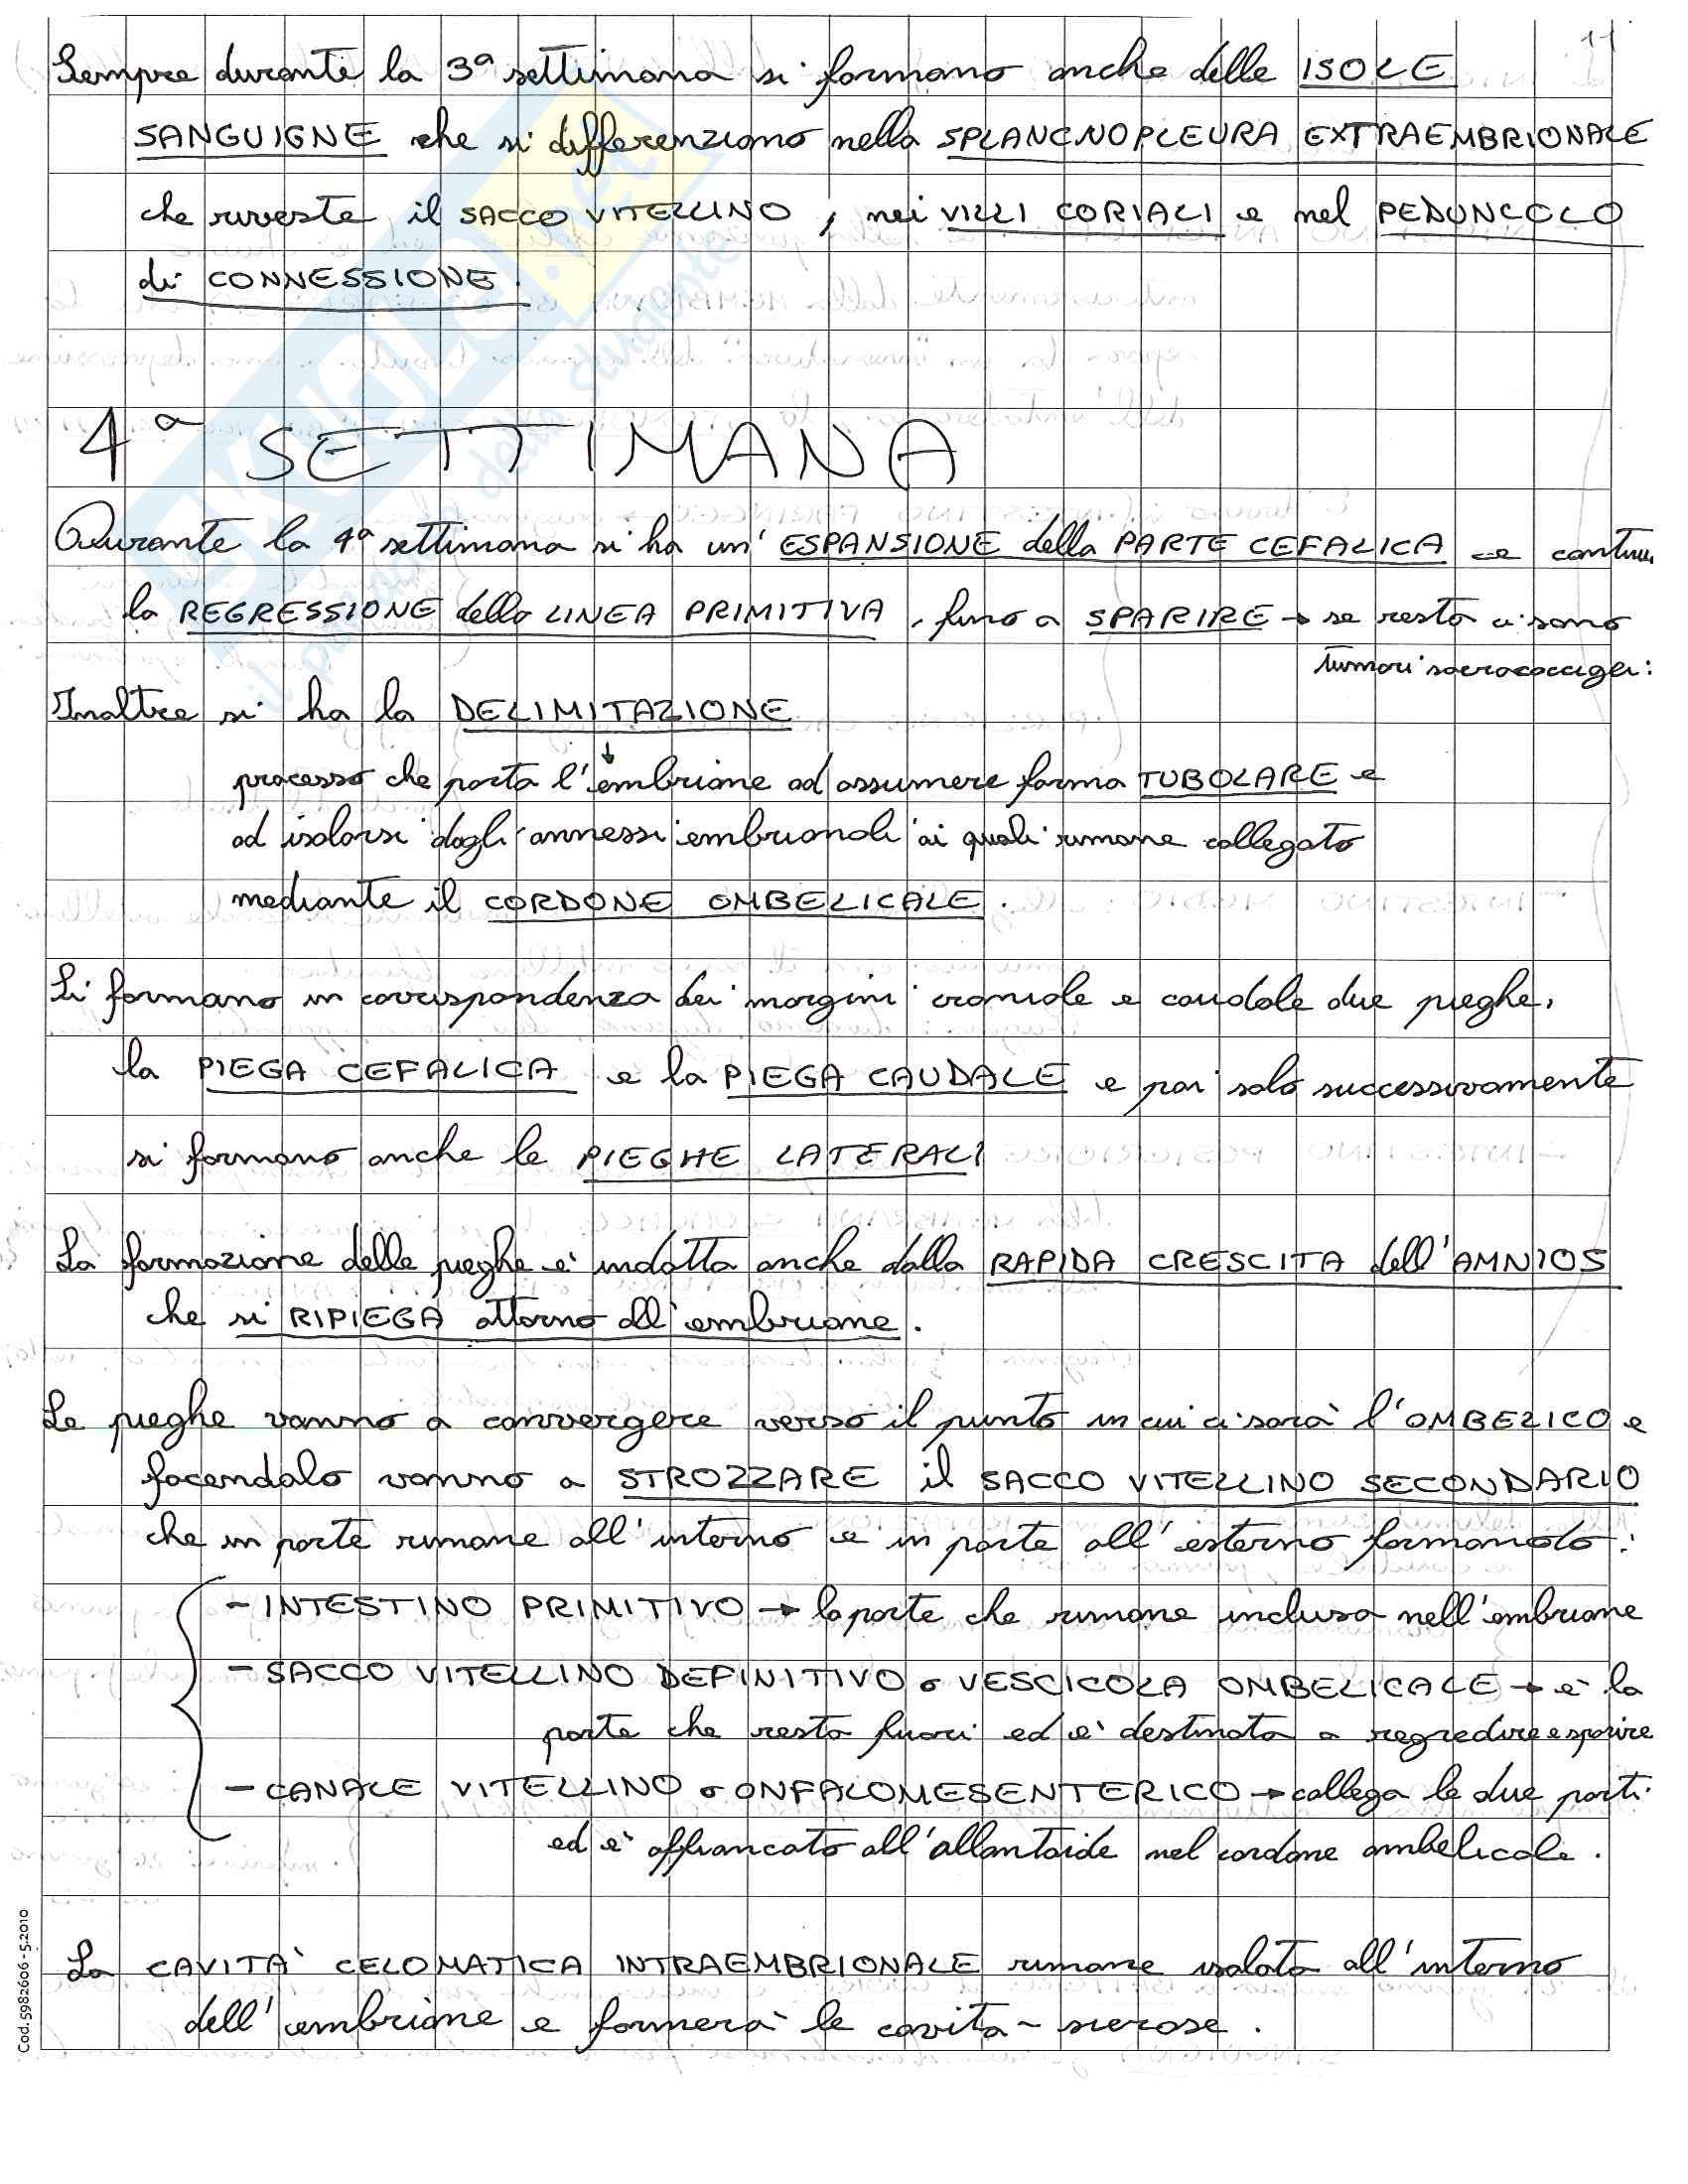 11
Sempre durante la 3ª settimana si formano anche delle ISOLE
SANGUIGNE che si differenziano nella SPLANCNOPLEURA EXTRAEMBRIONALE
che riveste il SACCO VITELLINO, nei VILLI CORIALI e nel PEDUNCOLO
di CONNESSIONE.
4ª SETTIMANA
Durante la 4ª settimana si ha un' ESPANSIONE della PARTE CEFALICA e continua
la REGRESSIONE della LINEA PRIMITIVA, fino a SPARIRE → se resta ci sono
tumori sacrococcigei
Inoltre si ha la DELIMITAZIONE
↓
processo che porta l'embrione ad assumere forma TUBOLARE e
ad isolarsi dagli annessi embrionali ai quali rimane collegato
mediante il CORDONE OMBELICALE.
Si formano in corrispondenza dei margini craniale e caudale due pieghe,
la PIEGA CEFALICA e la PIEGA CAUDALE e poi solo successivamente
si formano anche le PIEGHE LATERALI
La formazione delle pieghe è indotta anche dalla RAPIDA CRESCITA dell'AMNIOS
che si RIPIEGA attorno all'embrione.
Le pieghe vanno a convergere verso il punto in cui ci sarà l'OMBELICO e
facendolo vanno a STROZZARE il SACCO VITELLINO SECONDARIO
che in parte rimane all'interno e in parte all'esterno formando:
- INTESTINO PRIMITIVO → la parte che rimane inclusa nell'embrione
- SACCO VITELLINO DEFINITIVO o VESCICOLA OMBELICALE → è la
parte che resta fuori ed è destinata a regredire e sparire
- CANALE VITELLINO o ONFALOMESENTERICO → collega le due parti
ed è affiancato all'allantoide nel cordone ombelicale.
La CAVITÀ CELOMATICA INTRAEMBRIONALE rimane isolata all'interno
dell'embrione e formerà le cavità sierose.
Cod. 5982606 - 5.2010
SKUOLA.net
il paradiso dello studente